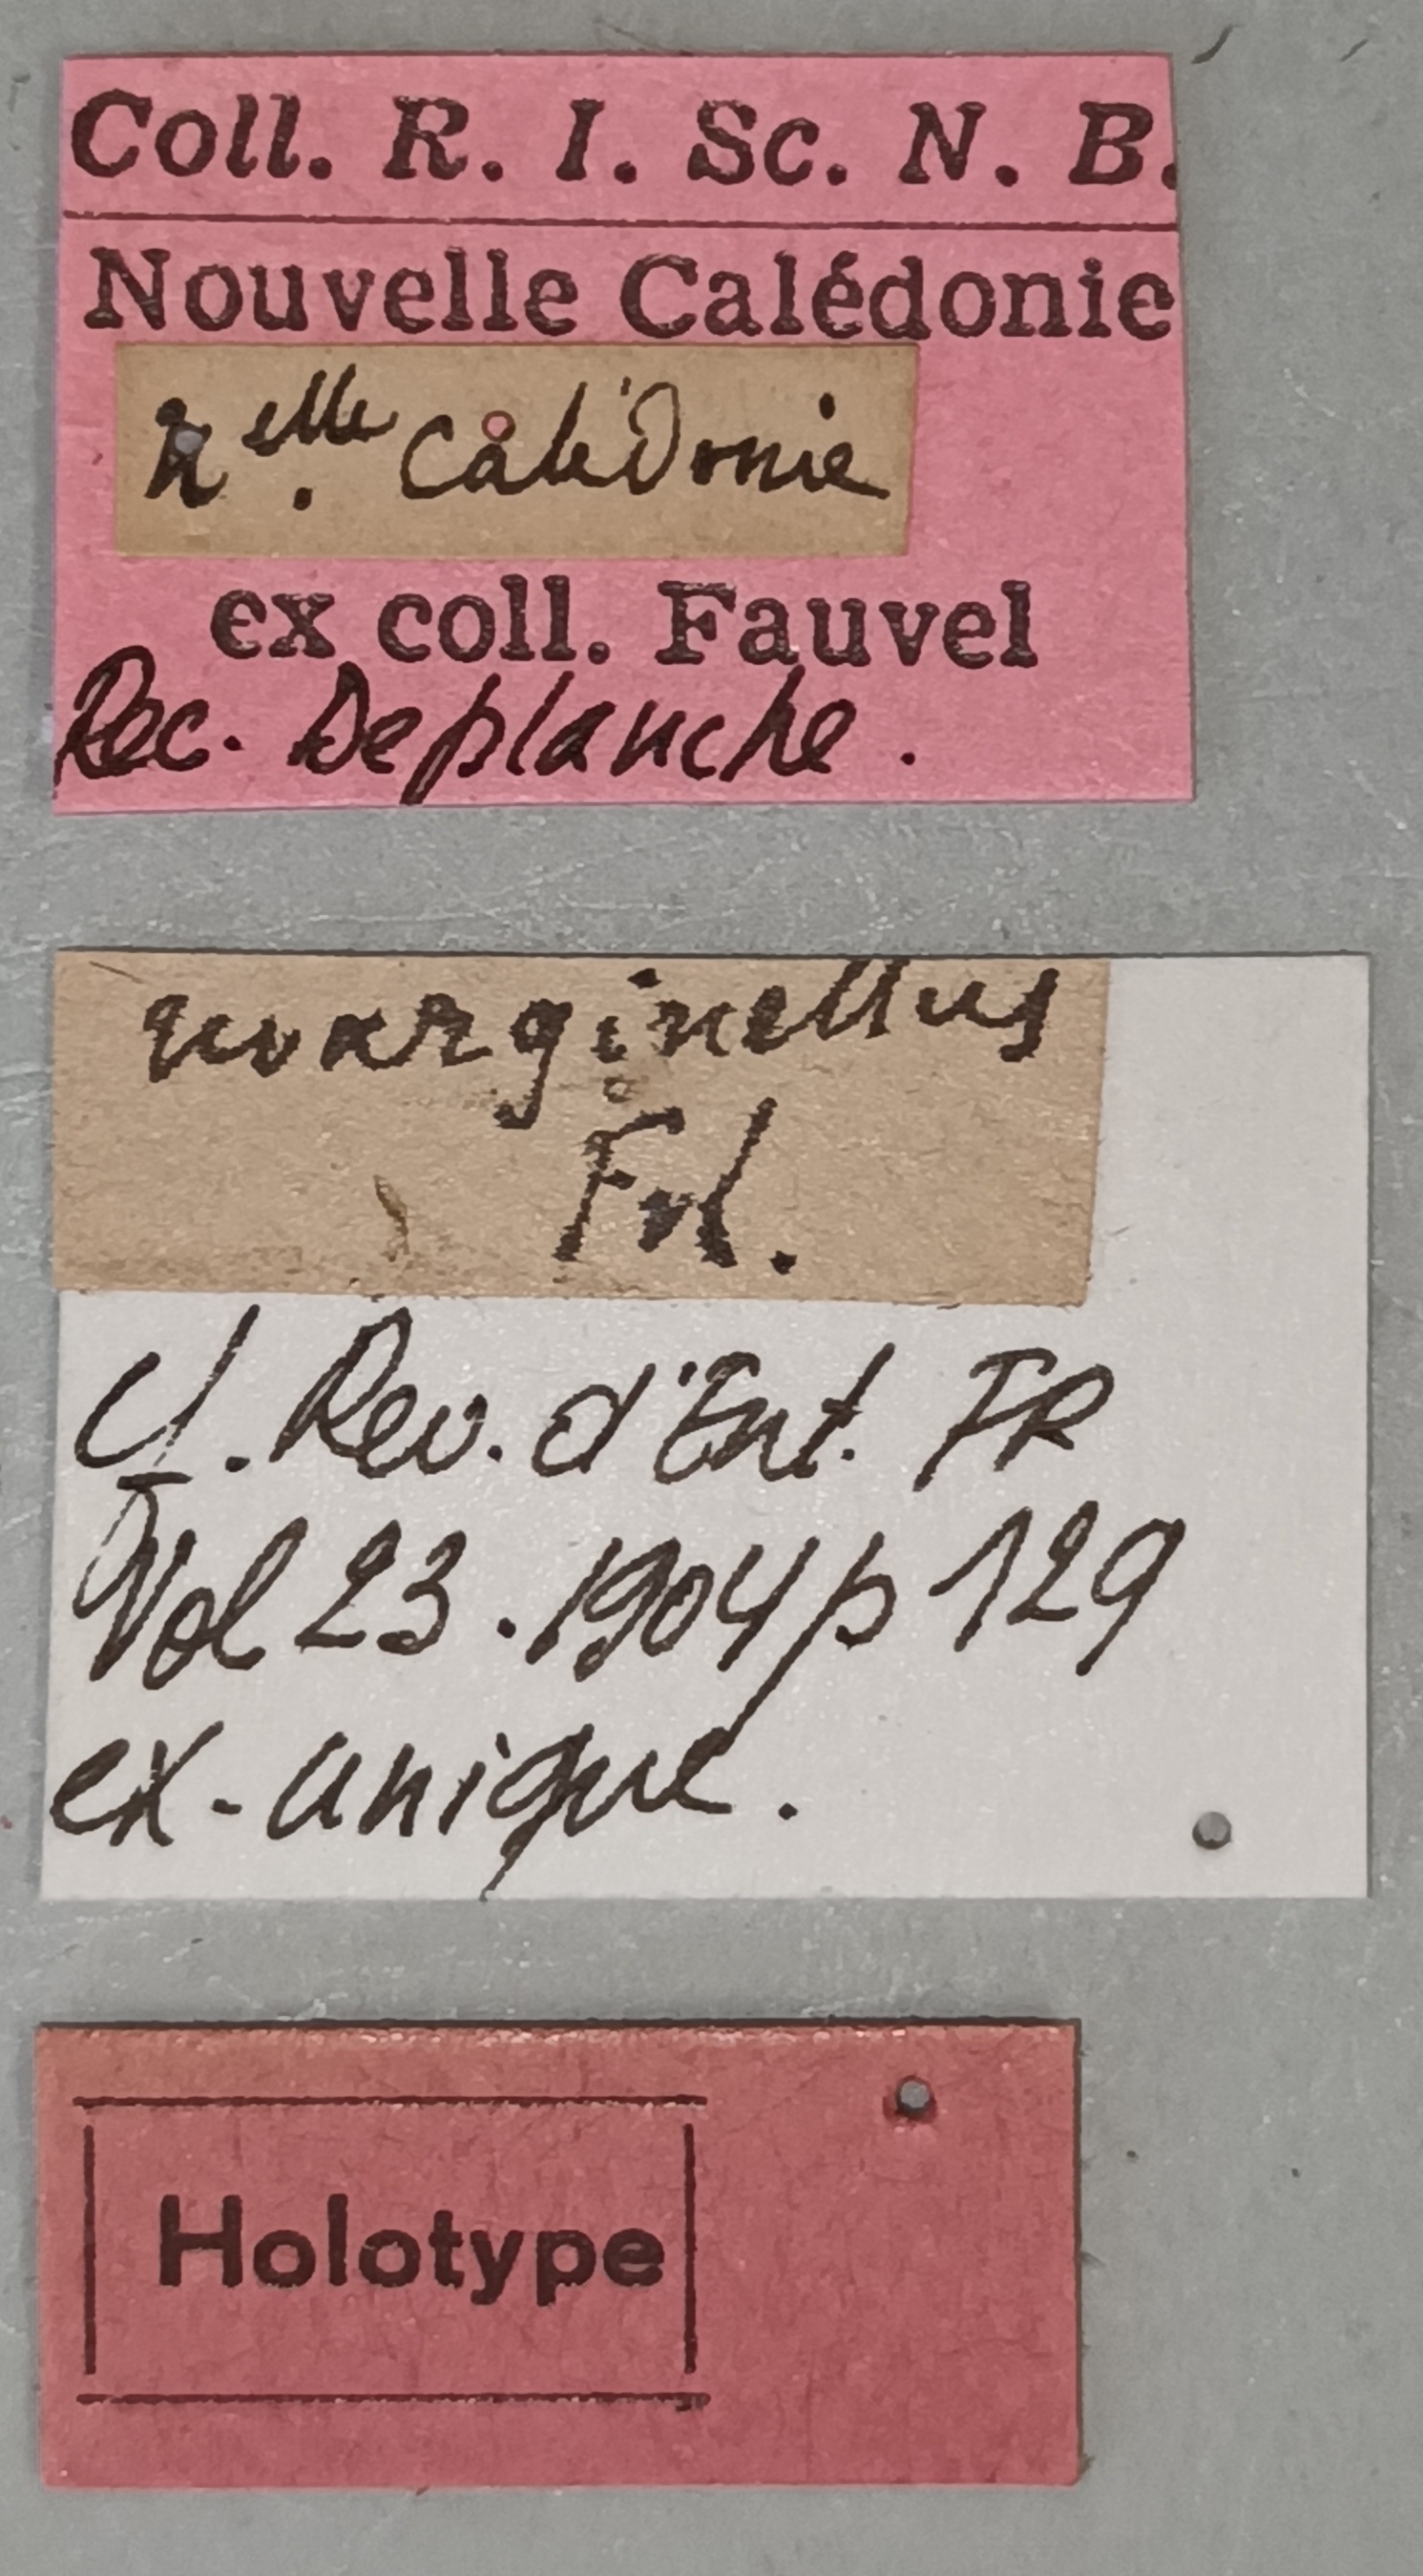 Coll. R. I. Sc. N. B.
Nouvelle Calédonie
nelle. Calédonie
ex coll. Fauvel
Rec. Deplanche.
marginellus
Fvl.
cf. Rev. d'Ent. FR
Vol 23. 1904 p 129
ex. unique.
Holotype